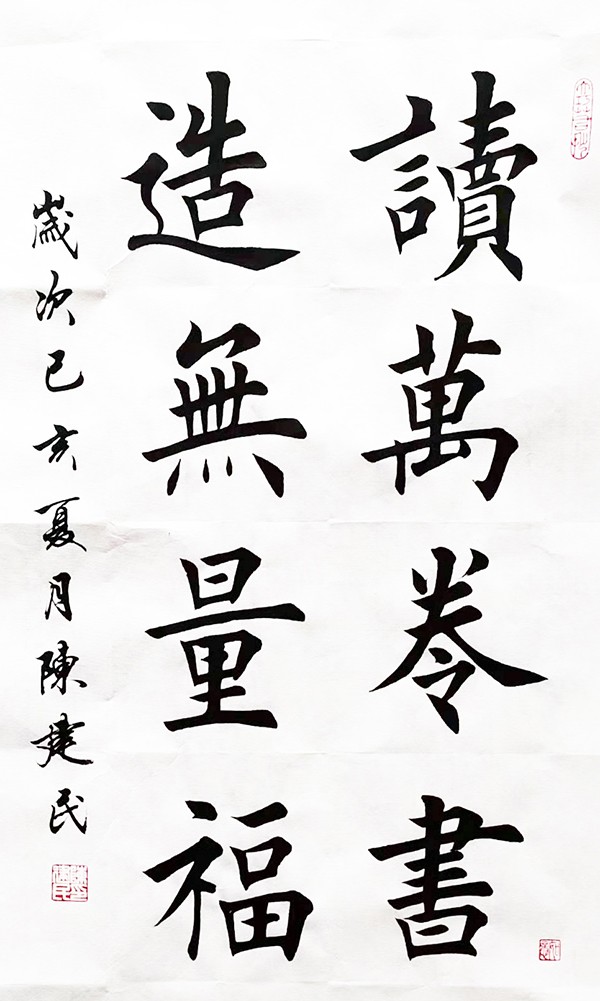 讀萬卷書
造無量福
歲次己亥夏月陳建民